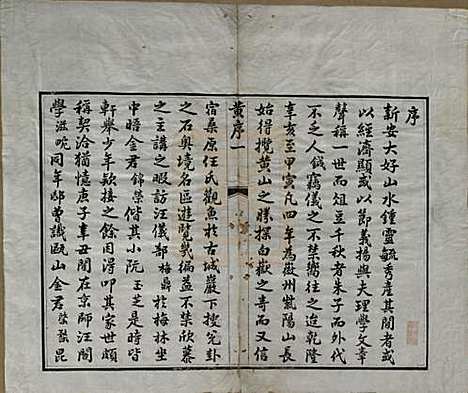 序
新安大好山水鍾靈毓秀產其間者或
以經濟顯或以節義揚與夫理學文章
聲稱一世而俎豆千秋者朱子而外代
不乏人余竊儀之不禁嚮往之迨乾隆
辛亥至甲寅凡四年為徽州紫陽山長
始得攬黃山之勝探白嶽之奇而又信
黃序一
宿桑原任氏觀魚於古城巖下搜先卦
之石奥境名區遊覽幾徧益不禁欣慕
之主講之暇訪汪儀部梅鼎於梅林坐
中晤金君錦榮偕其小阮玉芝是時皆
軒舉少年欵接之餘因得叩其家世頗
稱契洽猶憶庚子辛丑間在京師汪閣
學滋畹同年邸曾識甌山金君榮懿昆